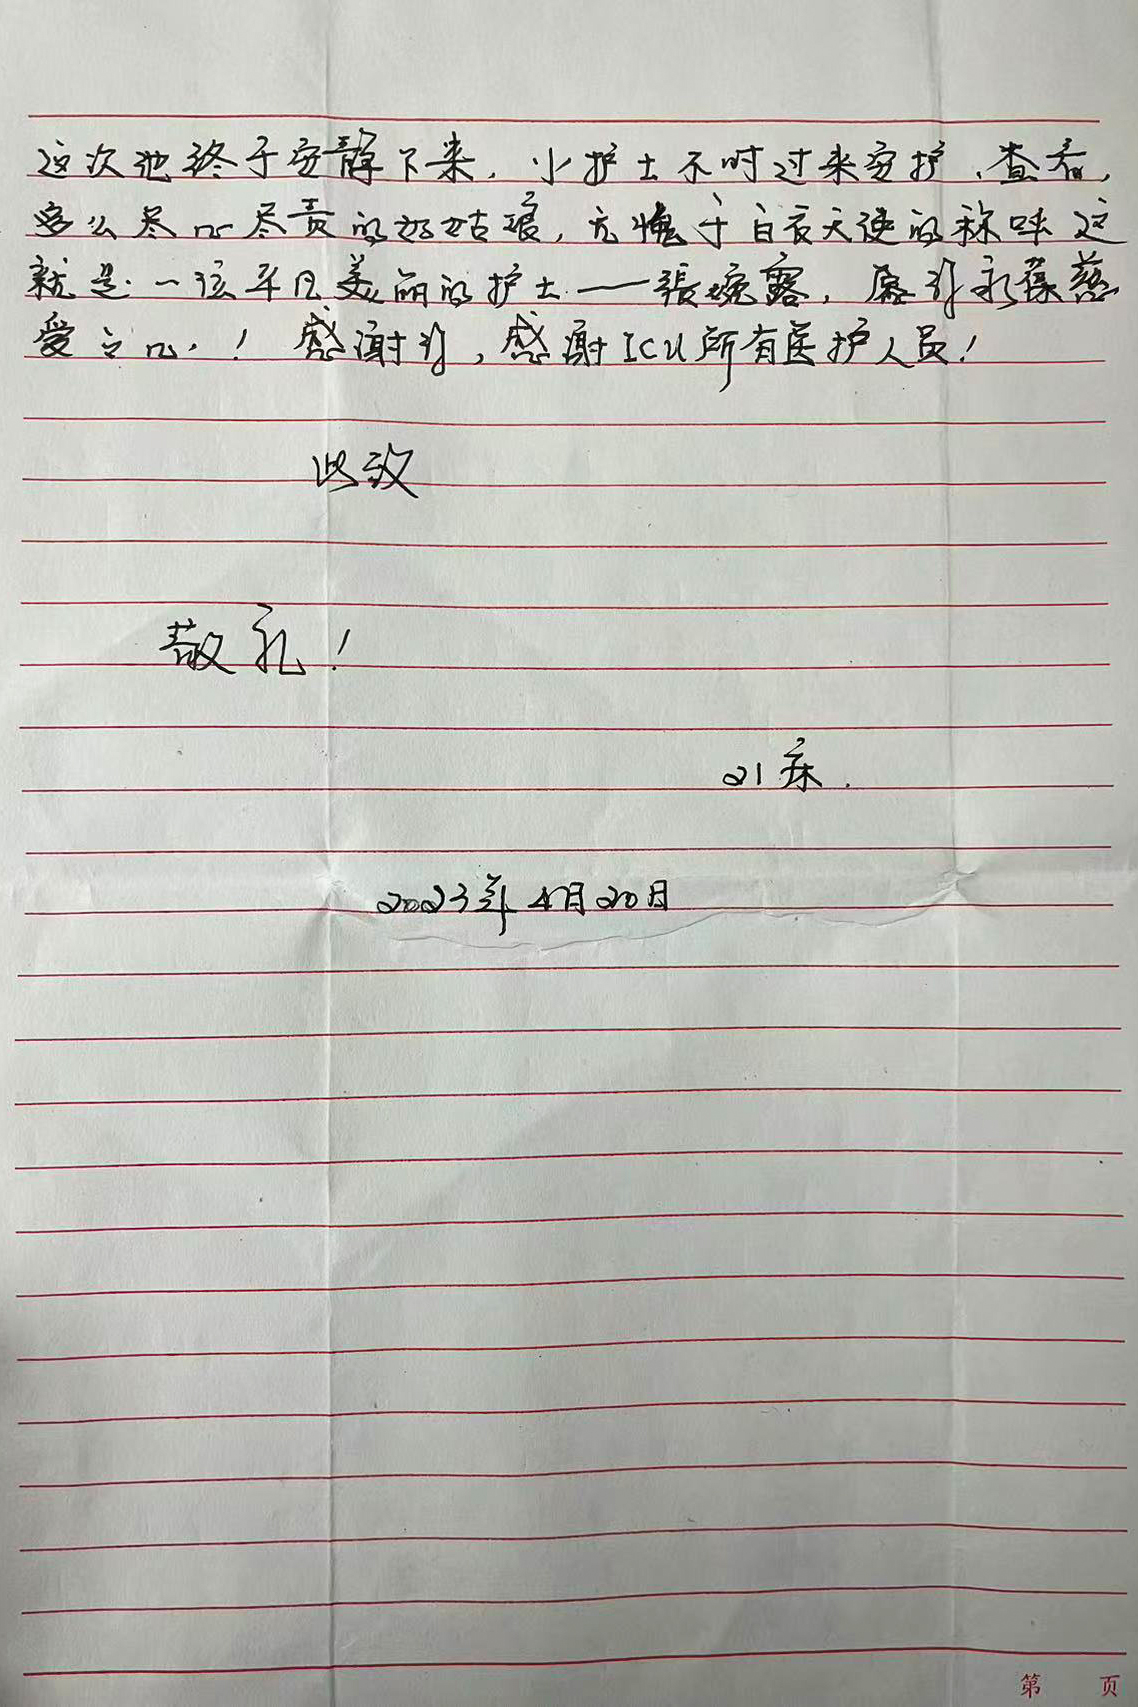 这次他终于安静下来，小护士不时过来安护、查看，
多么尽心尽责的好姑娘，无愧于白衣天使的称呼 这
就是一位平凡美丽的护士——張婉露，愿你永葆慈
爱之心！感谢你，感谢ICU所有医护人员！
此致
敬礼！
21床.
2023年4月20日
第 页